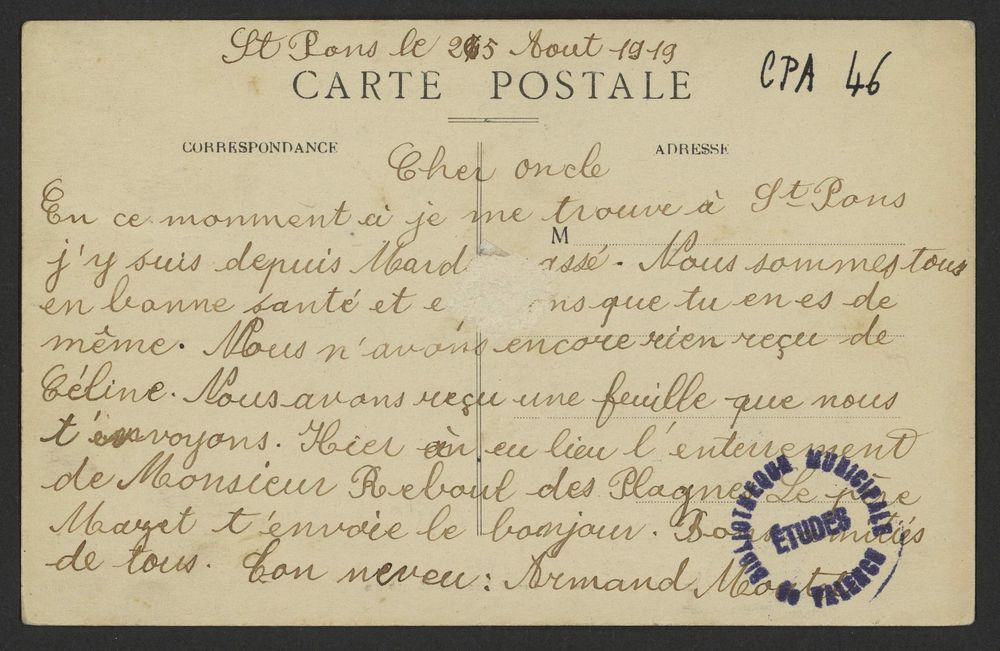 St Pons le 25 Aout 1919
CARTE POSTALE
CPA 46
CORRESPONDANCE
ADRESSE
Cher oncle
En ce monment à je me trouve à St Pons
M
j'y suis depuis Mard assé. Nous sommes tous
en bonne santé et e ons que tu en es de
même. Nous n'avons encore rien reçu de
Céline. Nous avons reçu une feuille que nous
t'envoyons. Hier eu lieu l'enterrement
de Monsieur Reboul des Plagnes Le père
Mazet t'envoie le bonjour. Bons amitiés
de tous. Ton neveu : Armand
BIBLIOTHEQUE MUNICIPALE
ÉTUDES
DE VALENCE